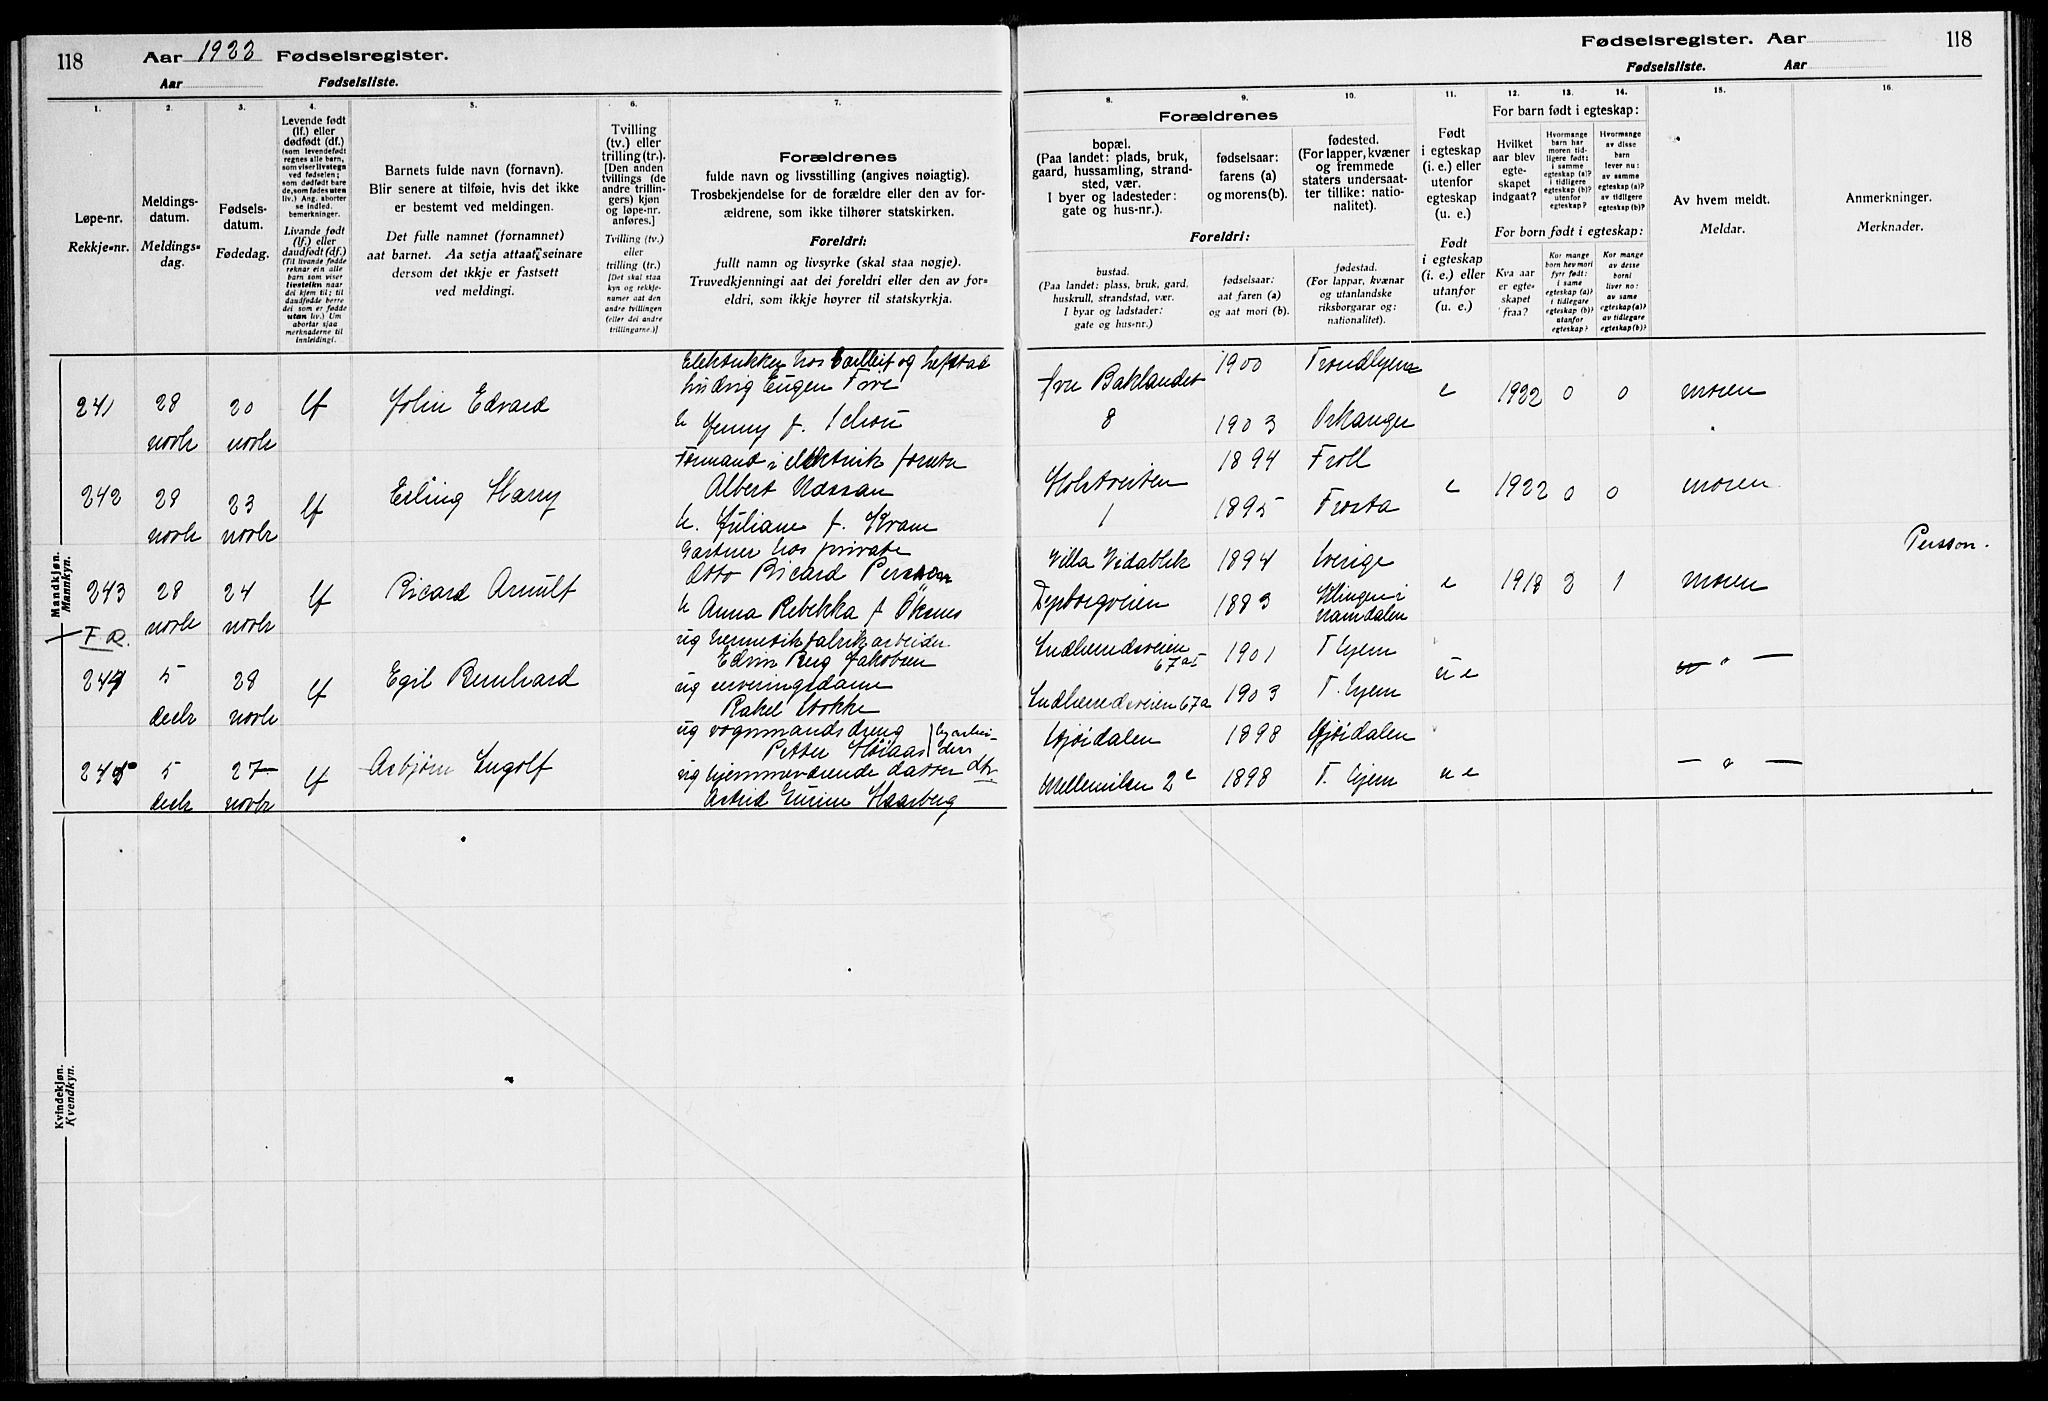 118 Aar 1922 Fødselsregister.
Aar Fødselsliste.
Fødselsregister. Aar 118
Fødselsliste. Aar
1. 2. 3. 4. 5. 6. 7.
Løpe-nr.
Rekkje-nr.
Meldings-
datum.
Meldings-
dag.
Fødsels-
datum.
Fødedag.
Levende født
(lf.) eller
dødfødt (df.)
(som levendefødt
regnes alle barn,
som viser livstegn
ved fødselen;
som dødfødt bare
de, som fødes uten
liv.) Ang. aborter
se indled.
bemerkninger.
Livande født
(lf.) eller
daudfødt (df.)
(Til livande fødde
reknar ein alle
barn som viser
livsteikn naar
dei kjem til; til
daudfødde berre
dei som er fødde
utan liv.) Um
abortar sjaa
merknaderne til
innleidingi.
Barnets fulde navn (fornavn).
Blir senere at tilføie, hvis det ikke
er bestemt ved meldingen.
Det fulle namnet (fornamnet)
aat barnet. Aa setja attaat, seinare
dersom det ikkje er fastsett
ved meldingi.
Tvilling
(tv.) eller
trilling (tr.).
[Den anden
tvillings (de
andre trillin-
gers) kjøn
og løpe-nr.
anføres.]
Tvilling (tv.)
eller
trilling (tr.)
[Det skal staa
kyn og rekkje-
numer aat den
andre tvillingen
(eller dei andre
trillingarne.)]
Forældrenes
fulde navn og livsstilling (angives nøiagtig).
Trosbekjendelse for de forældre eller den av for-
ældrene, som ikke tilhører statskirken.
Foreldri:
fullt namn og livsyrke (skal staa nøgje).
Truvedkjenningi aat dei foreldri eller den av for-
eldri, som ikkje høyrer til statskyrkja.
8. 9. 10. 11. 12. 13. 14. 15. 16.
Forældrenes
bopæl.
(Paa landet: plads, bruk,
gaard, hussamling, strand-
sted, vær.
I byer og ladesteder:
gate og hus-nr.).
fødselsaar:
farens (a)
og morens (b).
fødested.
(For lapper, kvæner
og fremmede
staters undersaat-
ter tillike: natio-
nalitet).
Foreldri:
bustad.
(Paa landet: plass, bruk, gard,
huskrull, strandstad, vær.
I byar og ladstader:
gate og hus-nr.)
fødselsaar:
aat faren (a)
og aat mori (b).
fødestad.
(For lappar, kvænar
og utanlandske
riksborgarar og:
nationalitet).
Født
i egteskap
(i. e.) eller
utenfor
egteskap
(u. e.)
Født
i egteskap
(i. e.) eller
utanfor
(u. e.)
For barn født i egteskap:
Hvilket
aar blev
egte-
skapet
indgaat?
Hvormange
barn har
moren tid-
ligere født:
i samme
egteskap (a)?
i tidligere
egteskap (b)?
utenfor
egteskap?
Hvormange
av disse
barn
lever nu:
av samme
egteskap (a)?
av tidligere
egteskap (b)?
For born født i egteskap:
Kva aar
er egte-
skapet
fraa?
Kor mange
born hev mori
fyrr født:
i same
egteskap (a)?
i tidlegare
egteskap (b)?
utanfor
egteskap?
Kor mange
av desse
borni
liver no:
av same
egteskap (a)?
av tidlegare
egteskap (b)?
Av hvem meldt.
Meldar.
Anmerkninger.
Merknader.
Mandkjøn.
Mannkyn.
241 28 novbr 20 novbr lf John Edvard
Ludvig Eugen
h Jenny f. Schou
Øvre Baklandet 8 1900 Trondhjem
1903 Orkanger
e 1922 0 0 moren
242 28 novbr 23 novbr lf Erling Harry
Formand i elektrisk forretn
Albert
h. Juliane f. Kvam
1 1894 Troll
1895 Frosta
e 1922 0 0 moren
243 28 novbr 24 novbr lf Ricard Arnulf
Gartner hos private
Otto Ricard Persson
h Anna Rebekka f Øksnes
Villa Vidablik 1894 Sverige
Dyborgveien 1883 Klingen i
Namdalen
e 1918 2 1 moren Persson.
F.R.
244 5 decbr 28 novbr lf Egil Bernhard
ug hermetikfabrikarbeider
Edvin Berg Jakobsen
ug serveringsdame
Rakel Stokke
Indherredsveien 67a 1901 T hjem
Indherredsveien 67a 1903 T. hjem
u e — " —
245 5 decbr 27 novbr lf Asbjørn Ingolf
ug vognmandsdreng
Petter Høiaas
ug hjemmeværende datter
Astrid Haarberg
Gjøidalen 1898 Gjøidalen
Mellemilen 2c 1898 T. hjem
u e — " —
Kvindekjøn.
Kvendkyn.